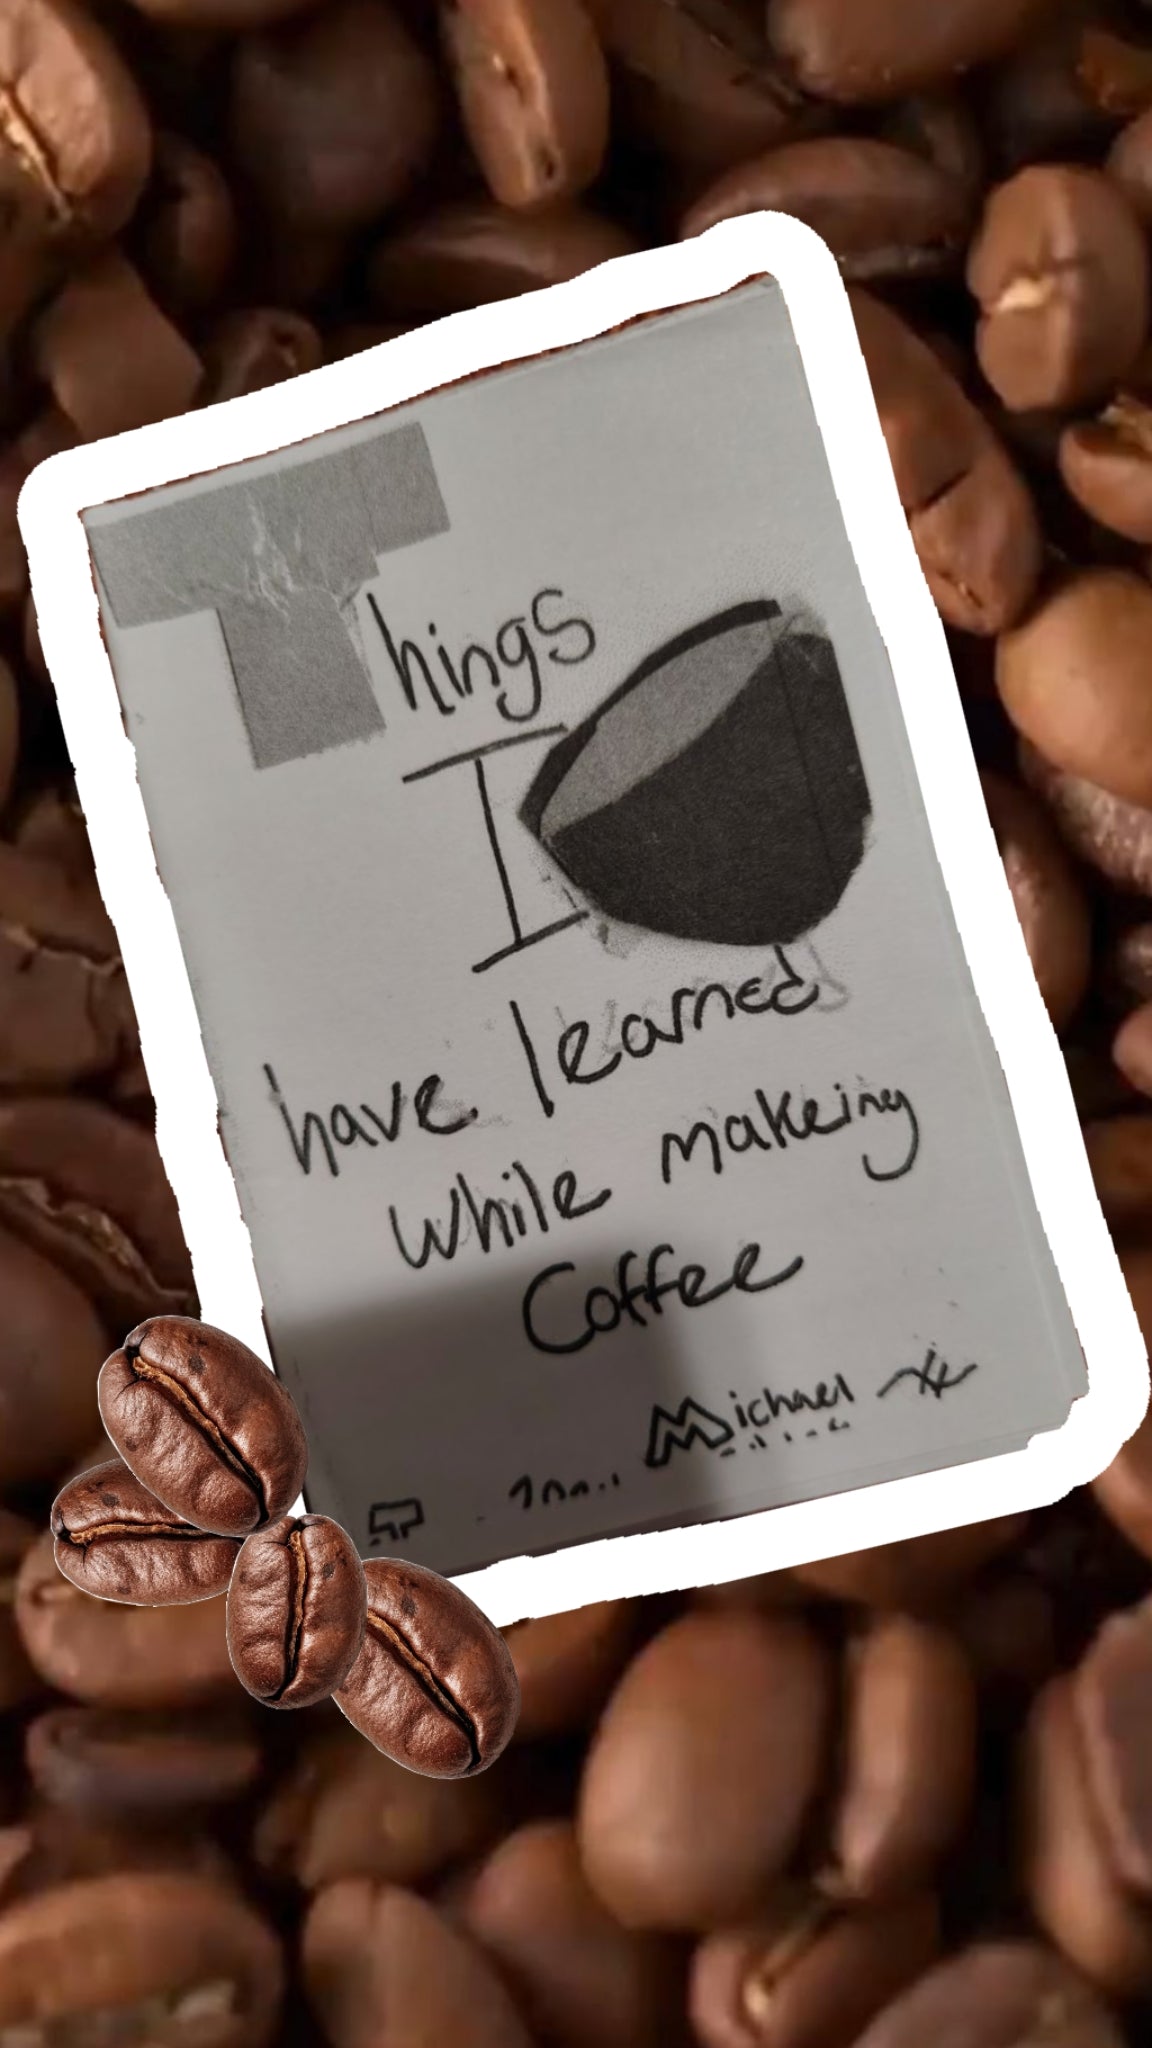 Things
I
have learned
while makeing
Coffee
Michael